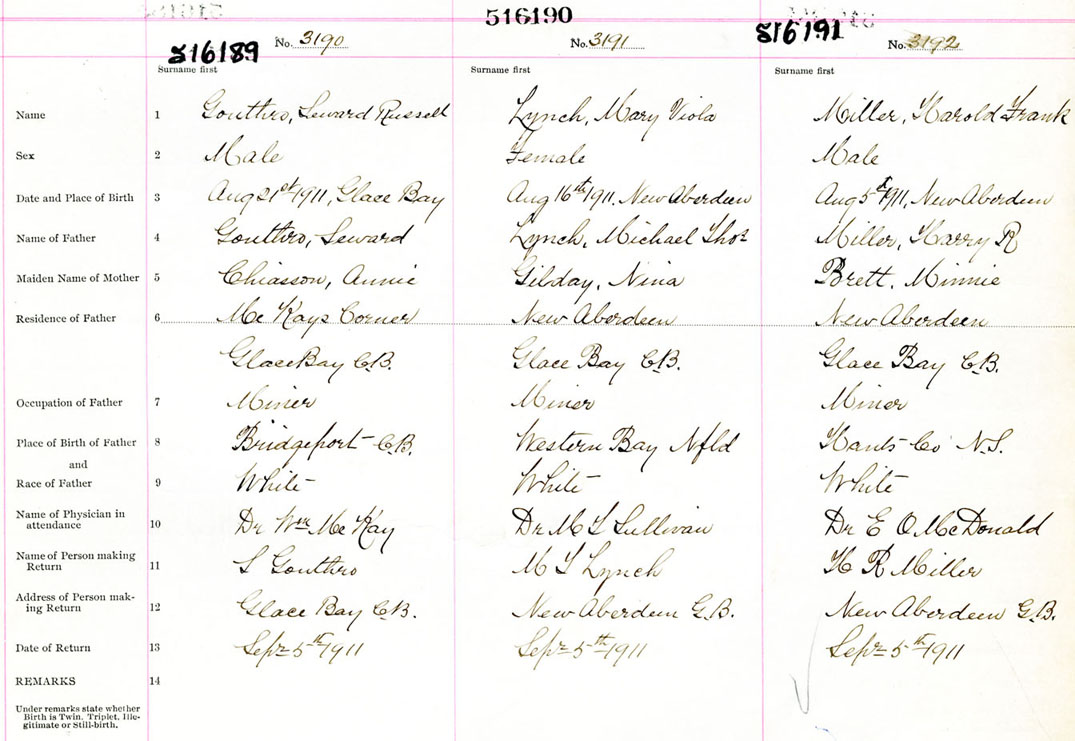 516190
516189 No. 3190 No. 3191 516191 No. 3192
Surname first Surname first Surname first
Name 1 Gouthro, Seward Russell Lynch, Mary Viola Miller, Harold Frank
Sex 2 Male Female Male
Date and Place of Birth 3 Aug 21st 1911, Glace Bay Aug 16th 1911. New Aberdeen Aug 5th 1911, New Aberdeen
Name of Father 4 Gouthro, Seward Lynch, Michael Thos Miller, Harry R
Maiden Name of Mother 5 Chiasson, Annie Gilday, Nina Brett. Minnie
Residence of Father 6 Mc Kays Corner New Aberdeen New Aberdeen
Glace Bay C.B. Glace Bay C.B. Glace Bay C.B.
Occupation of Father 7 Miner Miner Miner
Place of Birth of Father 8 Bridgeport C.B. Western Bay Nfld Hants Co N.S.
and
Race of Father 9 White White White
Name of Physician in
attendance 10 Dr Wm Mc Kay Dr M T Sullivan Dr E O. McDonald
Name of Person making
Return 11 S Gouthro M T Lynch H R Miller
Address of Person mak-
ing Return 12 Glace Bay C.B. New Aberdeen G.B. New Aberdeen G.B.
Date of Return 13 Sept 5th 1911 Sept 5th 1911 Sept 5th 1911
REMARKS 14
Under remarks state whether
Birth is Twin, Triplet, Ille-
gitimate or Still-birth.